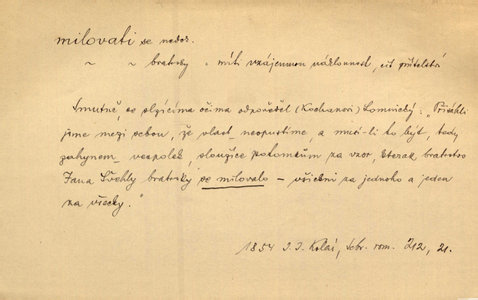 milovati se nedok.
~ ~ bratrsky : míti vzájemnou náklonnost, cit přátelství
Smutně, se slzícíma očima odpověděl (Kochanovi) Lomnický: „Přísáhli
jsme mezi sebou, že vlast neopustíme, a musí-li to být, tedy
zahynem vespolek, sloužíce potomkům za vzor, kterak bratrstvo
Jana Švehly bratrsky se milovalo – všickni za jednoho a jeden
za všecky."
1854 J. J. Kolár, Sebr. rom. 212, 21.